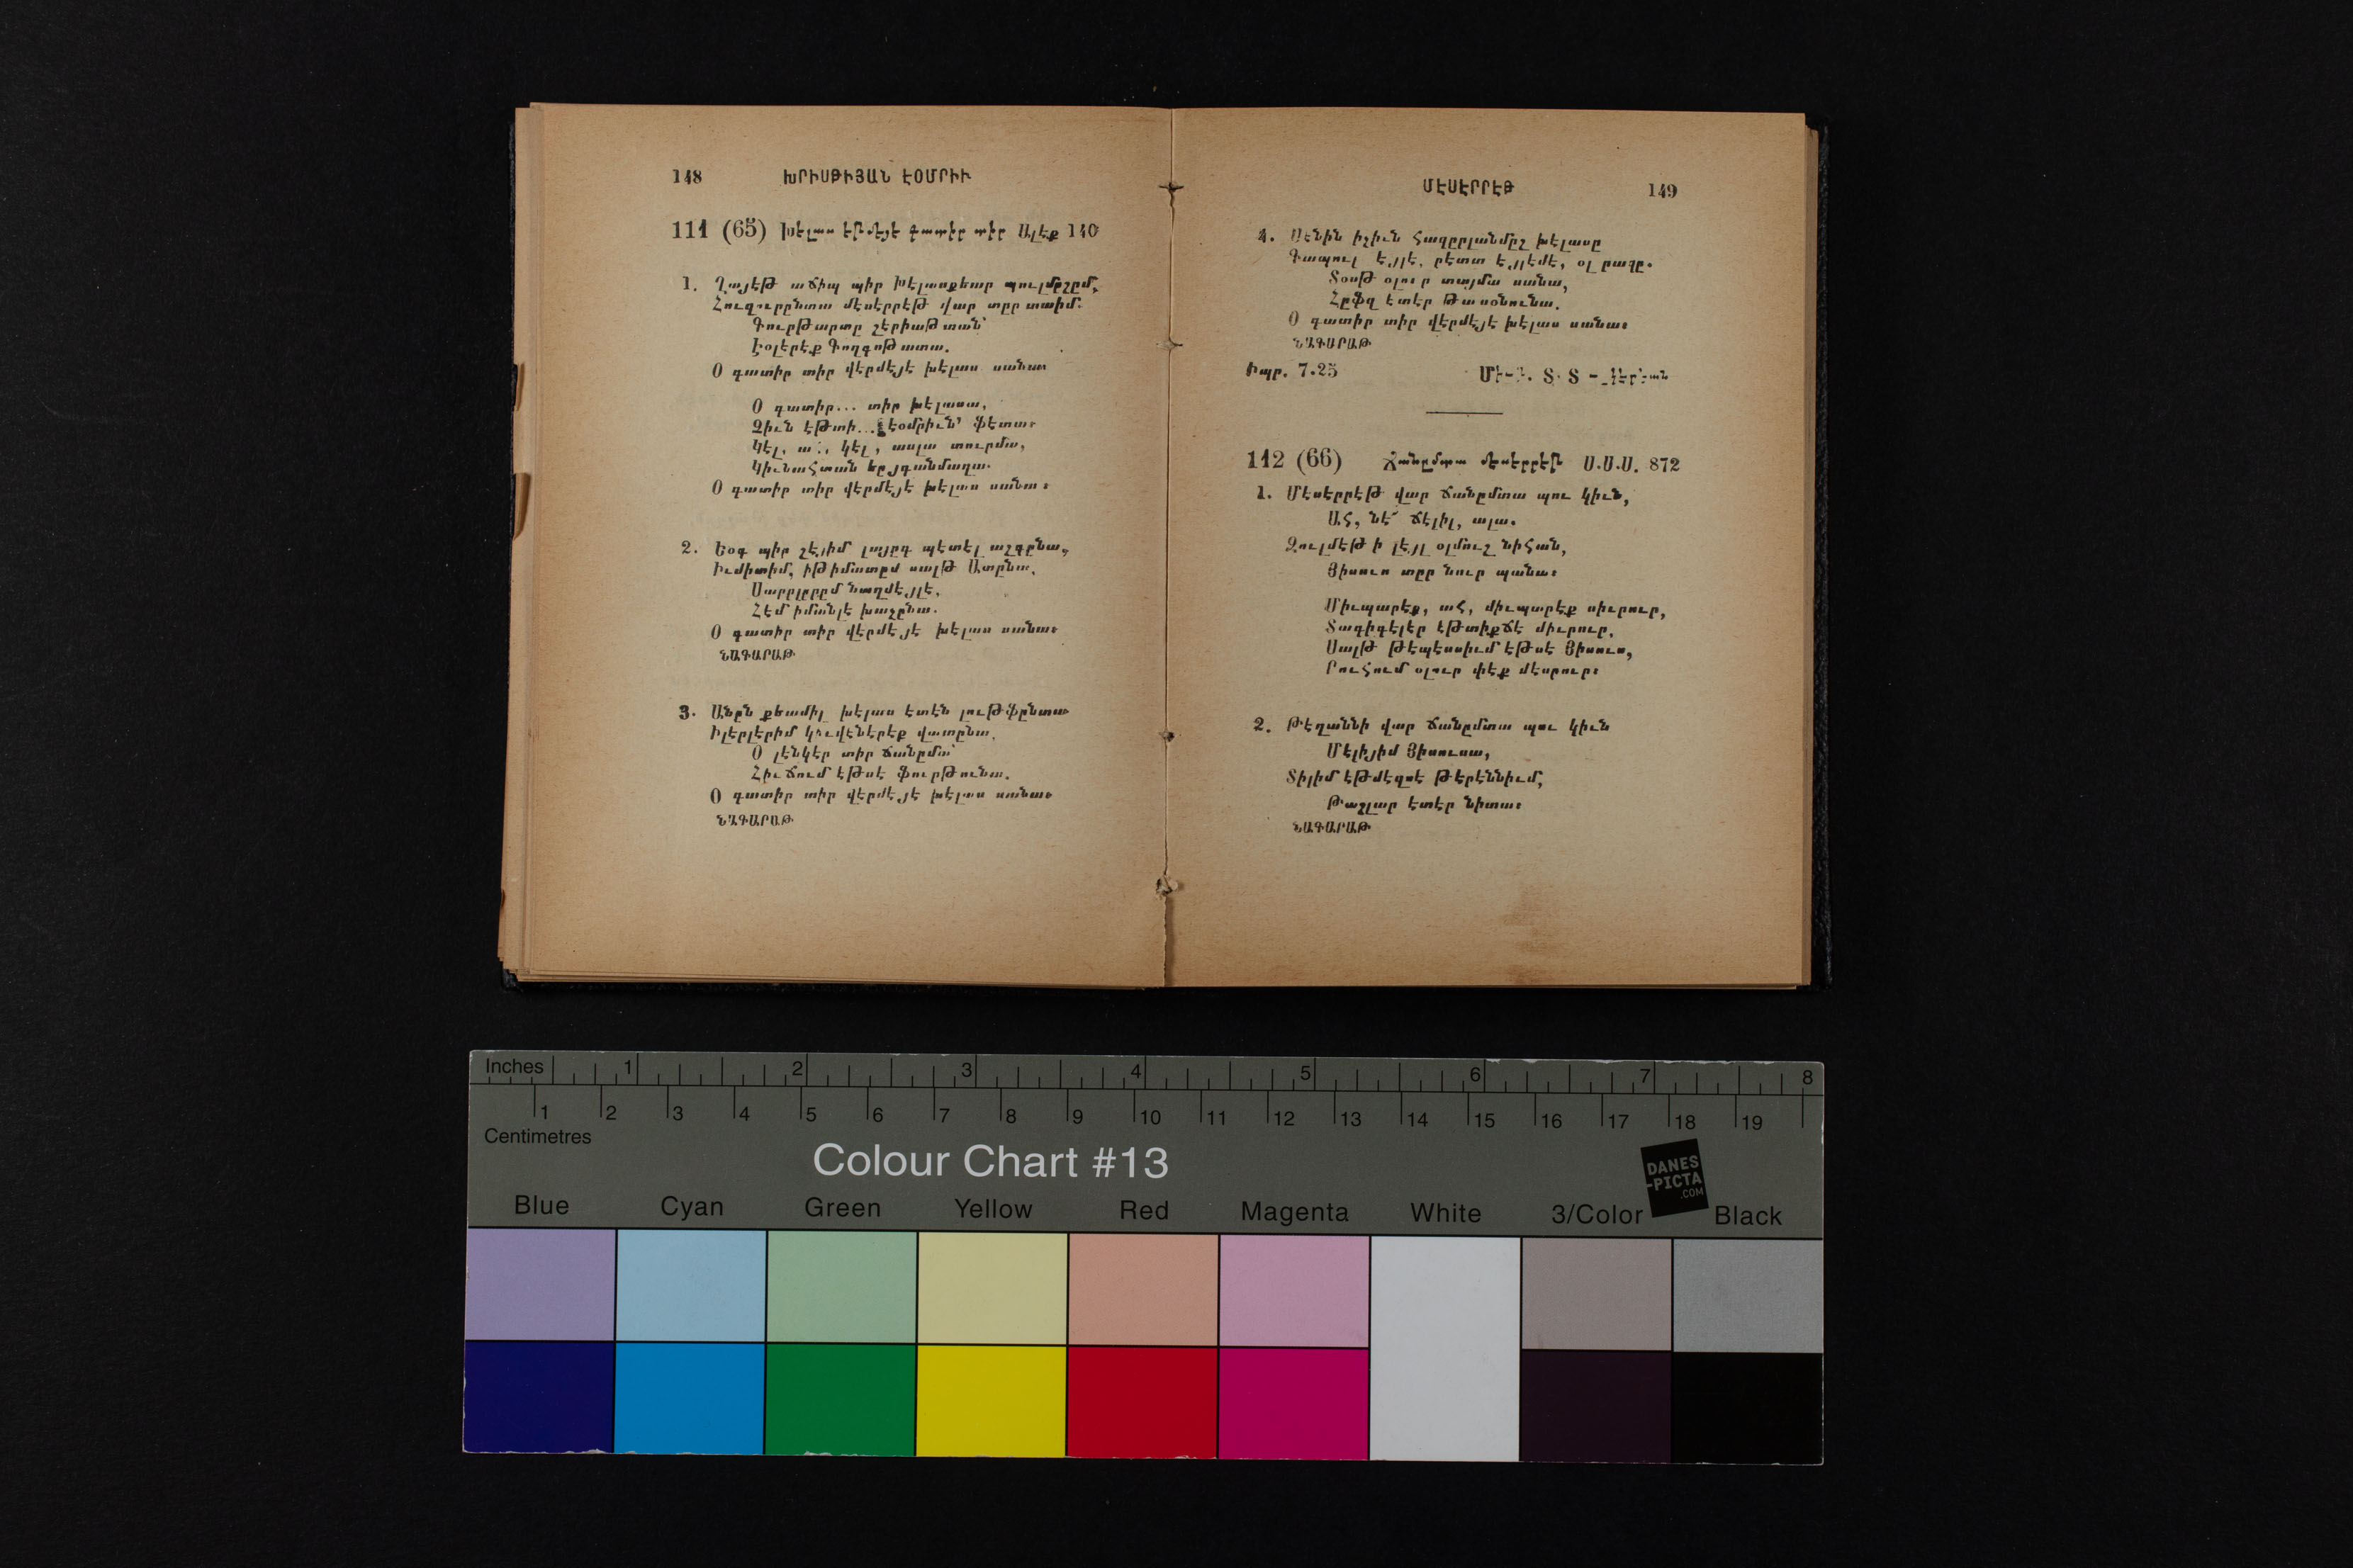 148 ԽՐԻՍԹԻՅԱՆ ԷՕՄՐԻՒ
111 (65) Խէլաս էթմէյէ գատիր տիր Ալէք 140
1. Ղայէթ աճիպ պիր Խէլասքեար պուլմըշըմ,
Հուզուրընտա մէսէրրէթ վար տըր տաիմ.
Գուրթարտը շէրիաթտան՝
Էօլէրէք Գողգոթատա.
Օ գատիր տիր վէրմէյէ խէլաս սանա։
Օ գատիր... տիր խէլասա,
Զիւն էթտի... էօմրիւն՝ ֆէտա։
Կէլ, ա՛, կէլ, ասլա տուրմա,
Կիւնահտան երյգանմաղա.
Օ գատիր տիր վէրմէյէ խէլաս սանա։
2. Եօգ պիր շէյիմ լայըգ պէտէլ աշգընա,
Իւմիտիմ, իթիմատըմ սալթ Ատընա,
Սարըլըրըմ նաղմէյլէ,
Հէմ իմանլէ խաչընա.
Օ գատիր տիր վէրմէյէ խէլաս սանա։
ՆԱԳԱՐԱԹ
3. Անըն քեամիլ խէլաս էտէն լութֆընտա
Իլէրլէրիմ կիւվէնէրէք վատընա,
Օ լէնկէր տիր ճանըմա՝
Հիւճում էթսէ ֆուրթունա.
Օ գատիր տիր վէրմէյէ խէլաս սանա։
ՆԱԳԱՐԱԹ
ՄԷՍԷՐՐԷԹ 149
4. Սէնին իչիւն հազըրլանմըշ խէլասը
Գապուլ էյլէ, րէտտ էյլէմէ, օլ րազը.
Տօսթ օլուր տայմա սանա,
Հըֆզ էտէր թա սօնունա.
Օ գատիր տիր վէրմէյէ խէլաս սանա։
ՆԱԳԱՐԱԹ
Իպր. 7.25
112 (66) Ճանըմտա մէսէրրէթ Ս.Ս.Ս. 872
1. Մէսէրրէթ վար ճանըմտա պու կիւն,
Ահ, նէ՜ ճէլիլ, ալա.
Զուլմէթ ի լէյլ օլմուշ նիհան,
Յիսուս տըր նուր պանա։
Միւպարէք, ահ, միւպարէք սիւրուր,
Տագիգէլէր էթտիքճէ միւրուր,
Սալթ թէպէսսիւմ էթսէ Յիսուս,
Րուհում օլուր փէք մէսրուր։
2. Թէղաննի վար ճանըմտա պու կիւն
Մէլիյիմ Յիսուսա,
Տիլիմ էթմէզսէ թէրէննիւմ,
Թաշլար էտէր նիտա։
ՆԱԳԱՐԱԹ
Inches 1 2 3 4 5 6 7 8
1 2 3 4 5 6 7 8 9 10 11 12 13 14 15 16 17 18 19
Centimetres
Colour Chart #13
DANES
-PICTA
.COM
Blue Cyan Green Yellow Red Magenta White 3/Color Black